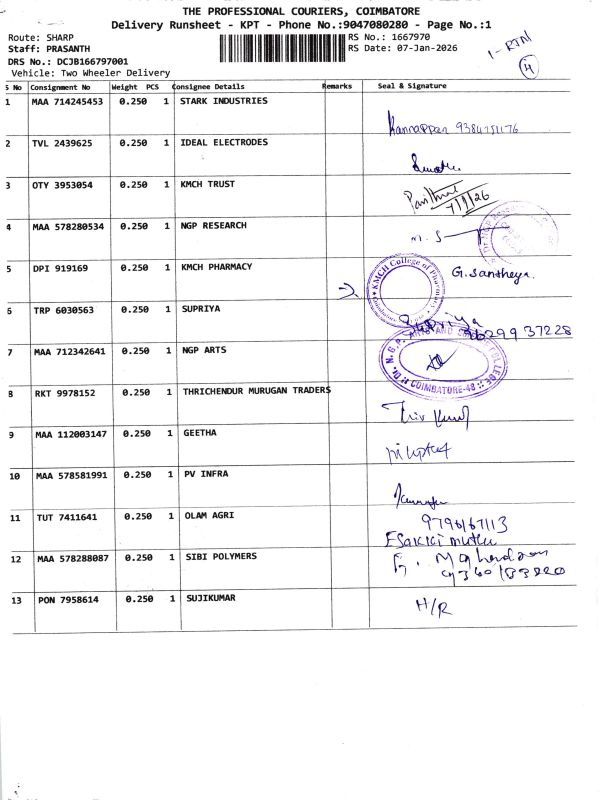 THE PROFESSIONAL COURIERS, COIMBATORE
Delivery Runsheet - KPT - Phone No.:9047080280 - Page No.:1
Route: SHARP
Staff: PRASANTH
DRS No.: DCJB166797001
Vehicle: Two Wheeler Delivery
RS No.: 1667970
RS Date: 07-Jan-2026
1-RTN
4
S No Consignment No Weight PCS Consignee Details Remarks Seal & Signature
1 MAA 714245453 0.250 1 STARK INDUSTRIES
Kannappan
2 TVL 2439625 0.250 1 IDEAL ELECTRODES
3 OTY 3953054 0.250 1 KMCH TRUST
7/1/26
4 MAA 578280534 0.250 1 NGP RESEARCH
M. S
5 DPI 919169 0.250 1 KMCH PHARMACY
KMCH College of Pharmacy
G. Santheya.
6 TRP 6030563 0.250 1 SUPRIYA
Supriya
9629937228
7 MAA 712342641 0.250 1 NGP ARTS
COIMBATORE-48
8 RKT 9978152 0.250 1 THRICHENDUR MURUGAN TRADERS
9 MAA 112003147 0.250 1 GEETHA
10 MAA 578581991 0.250 1 PV INFRA
11 TUT 7411641 0.250 1 OLAM AGRI
9796167113
Esakki muthu
12 MAA 578288087 0.250 1 SIBI POLYMERS
13 PON 7958614 0.250 1 SUJIKUMAR
H/R